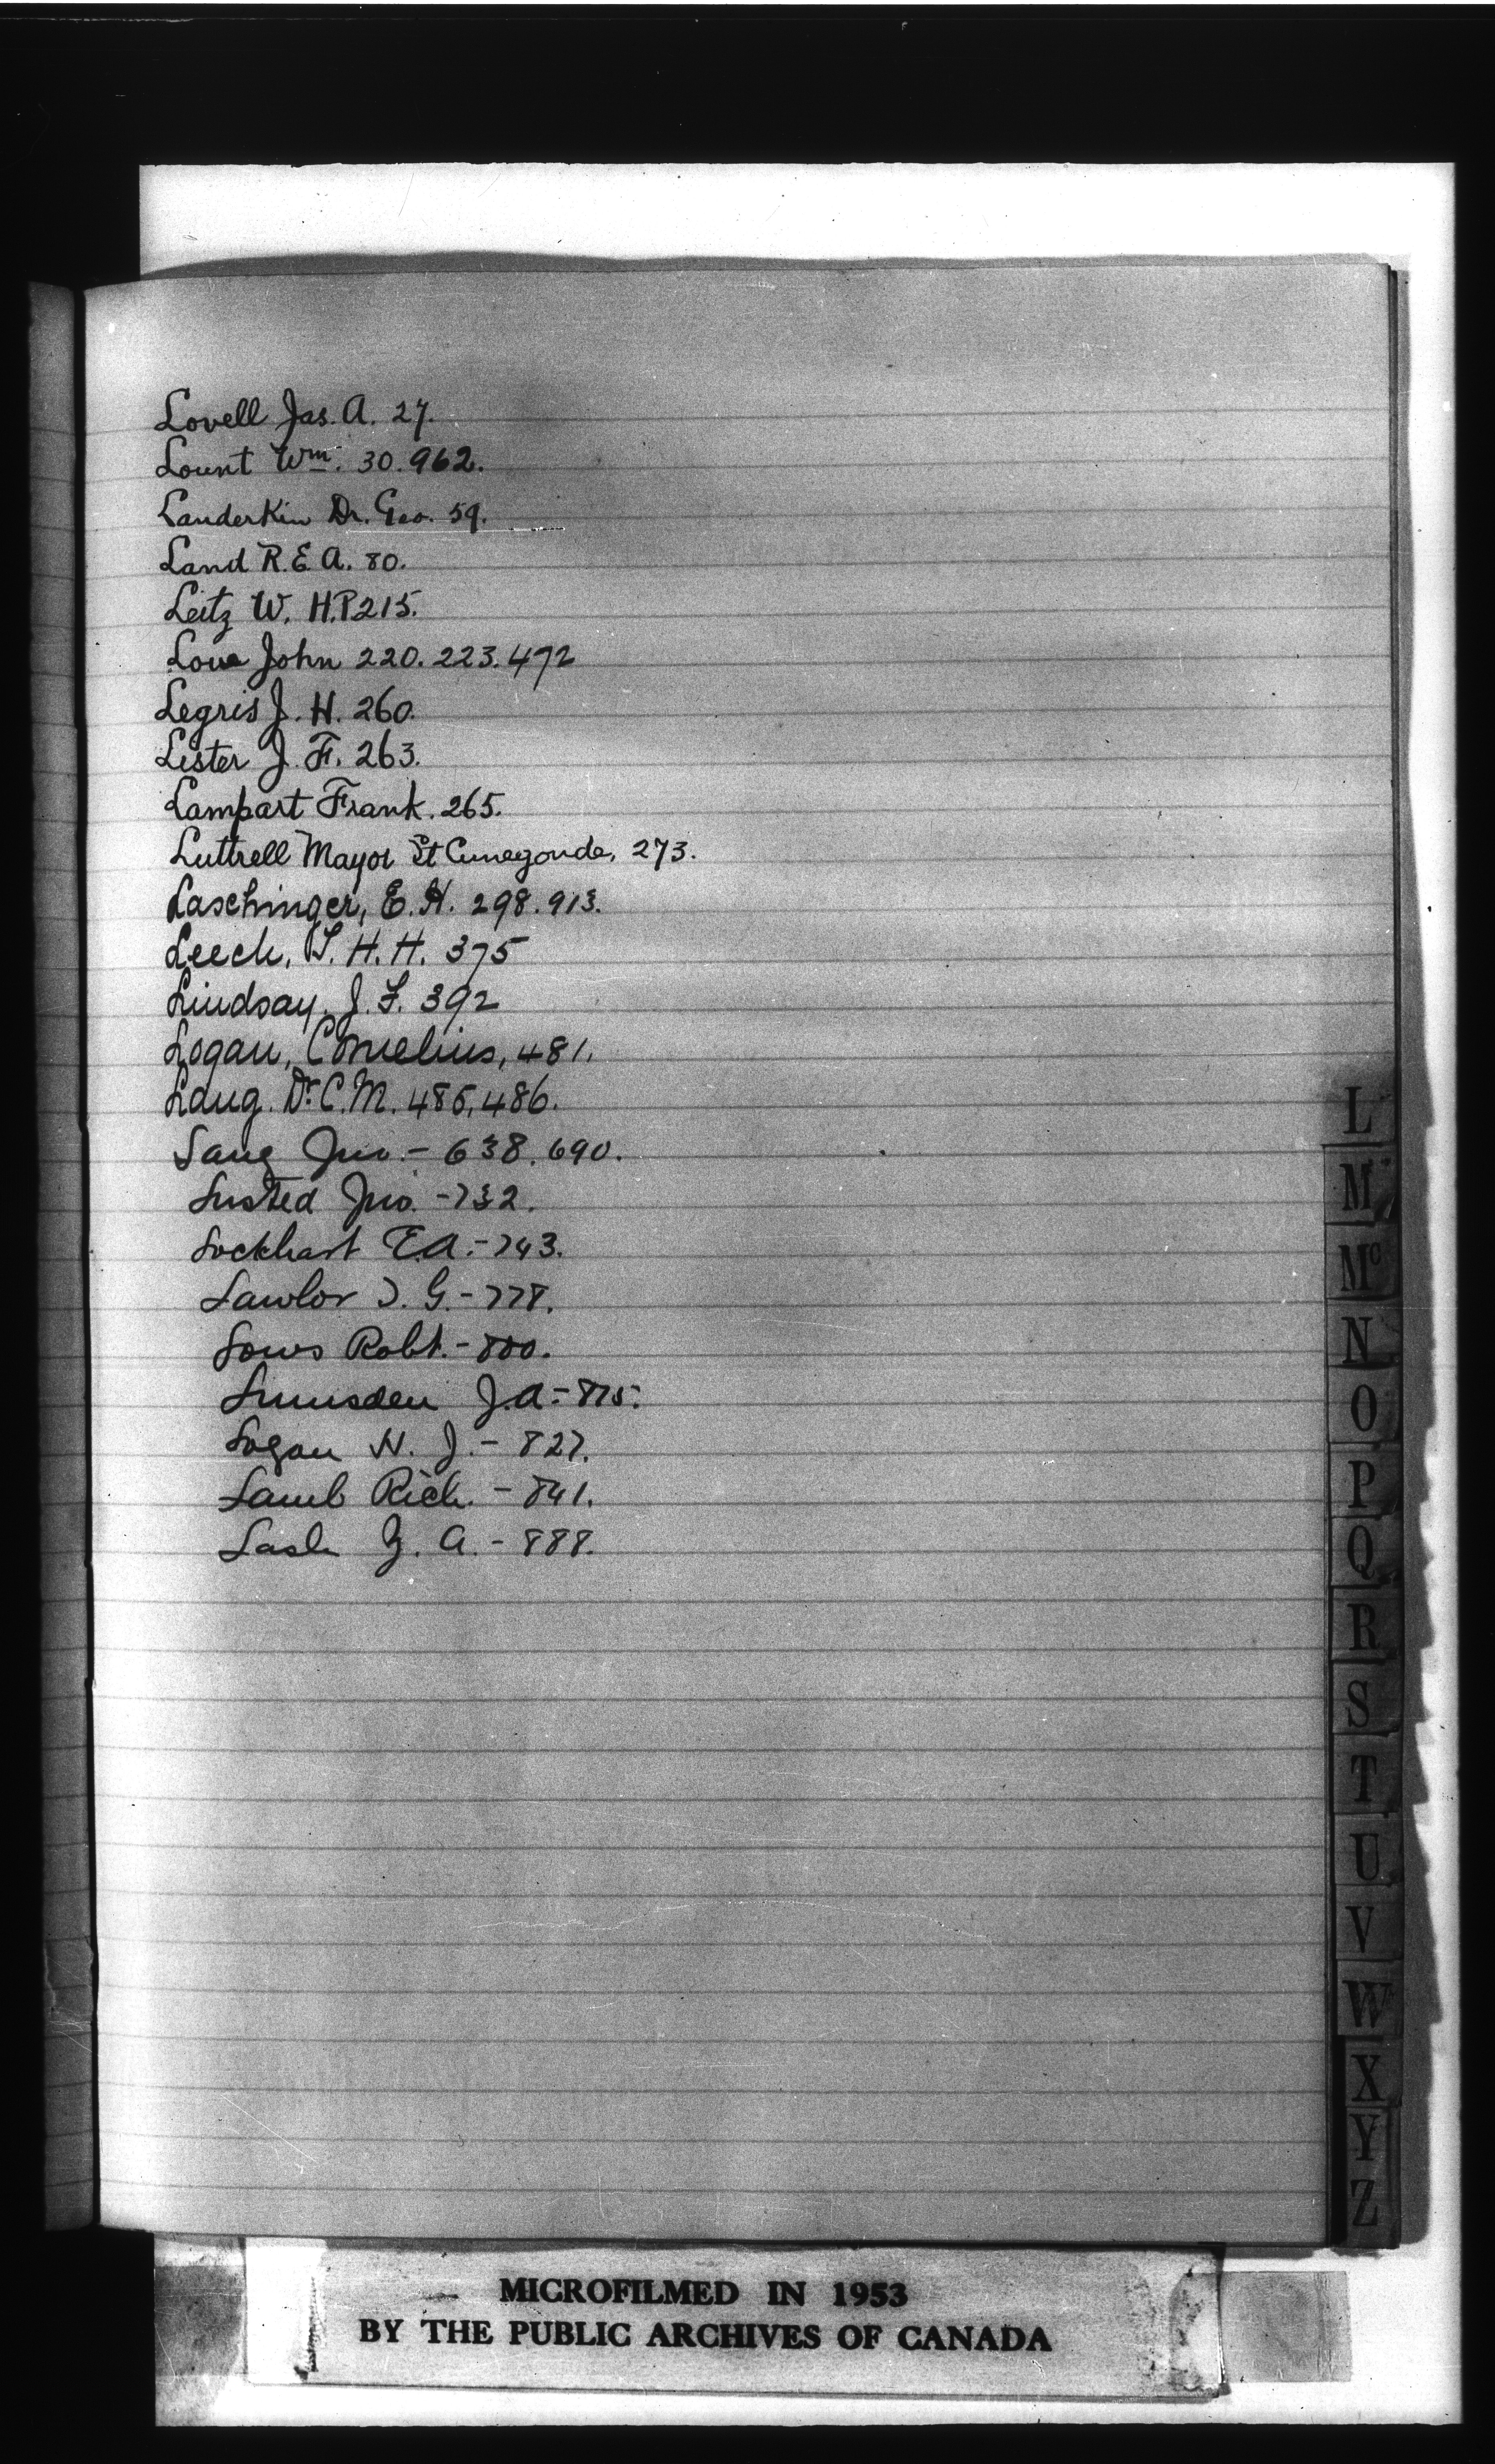 Lovell Jas. A. 27.
Lount Wm. 30. 962.
Landerkin Dr. Geo. 59.
Land R.E A. 80.
Leitz W. H.P. 215.
Lowe John 220. 223. 472
Legris J. H. 260.
Lister J. F. 263.
Lampart Frank. 265.
Luttrell Mayor St Cunegonde, 273.
Laschinger, E. H. 298. 913.
Leech, T. H. H. 375
Lindsay, J. F. 392
Logan, Cornelius, 481.
Lang. Dr. C. M. 485, 486.
Lang Jno. - 638. 690.
Lusted Jno. - 732.
Lockhart E.A. - 743.
Lawlor T. G. - 778.
Lows Robt. - 800.
Lumsden J.A. - 815.
Logan H. J. - 827.
Lamb Rich. - 841.
Lash Z. A. - 888.
L
M
Mc
N
O
P
Q
R
S
T
U
V
W
X
Y
Z
MICROFILMED IN 1953
BY THE PUBLIC ARCHIVES OF CANADA